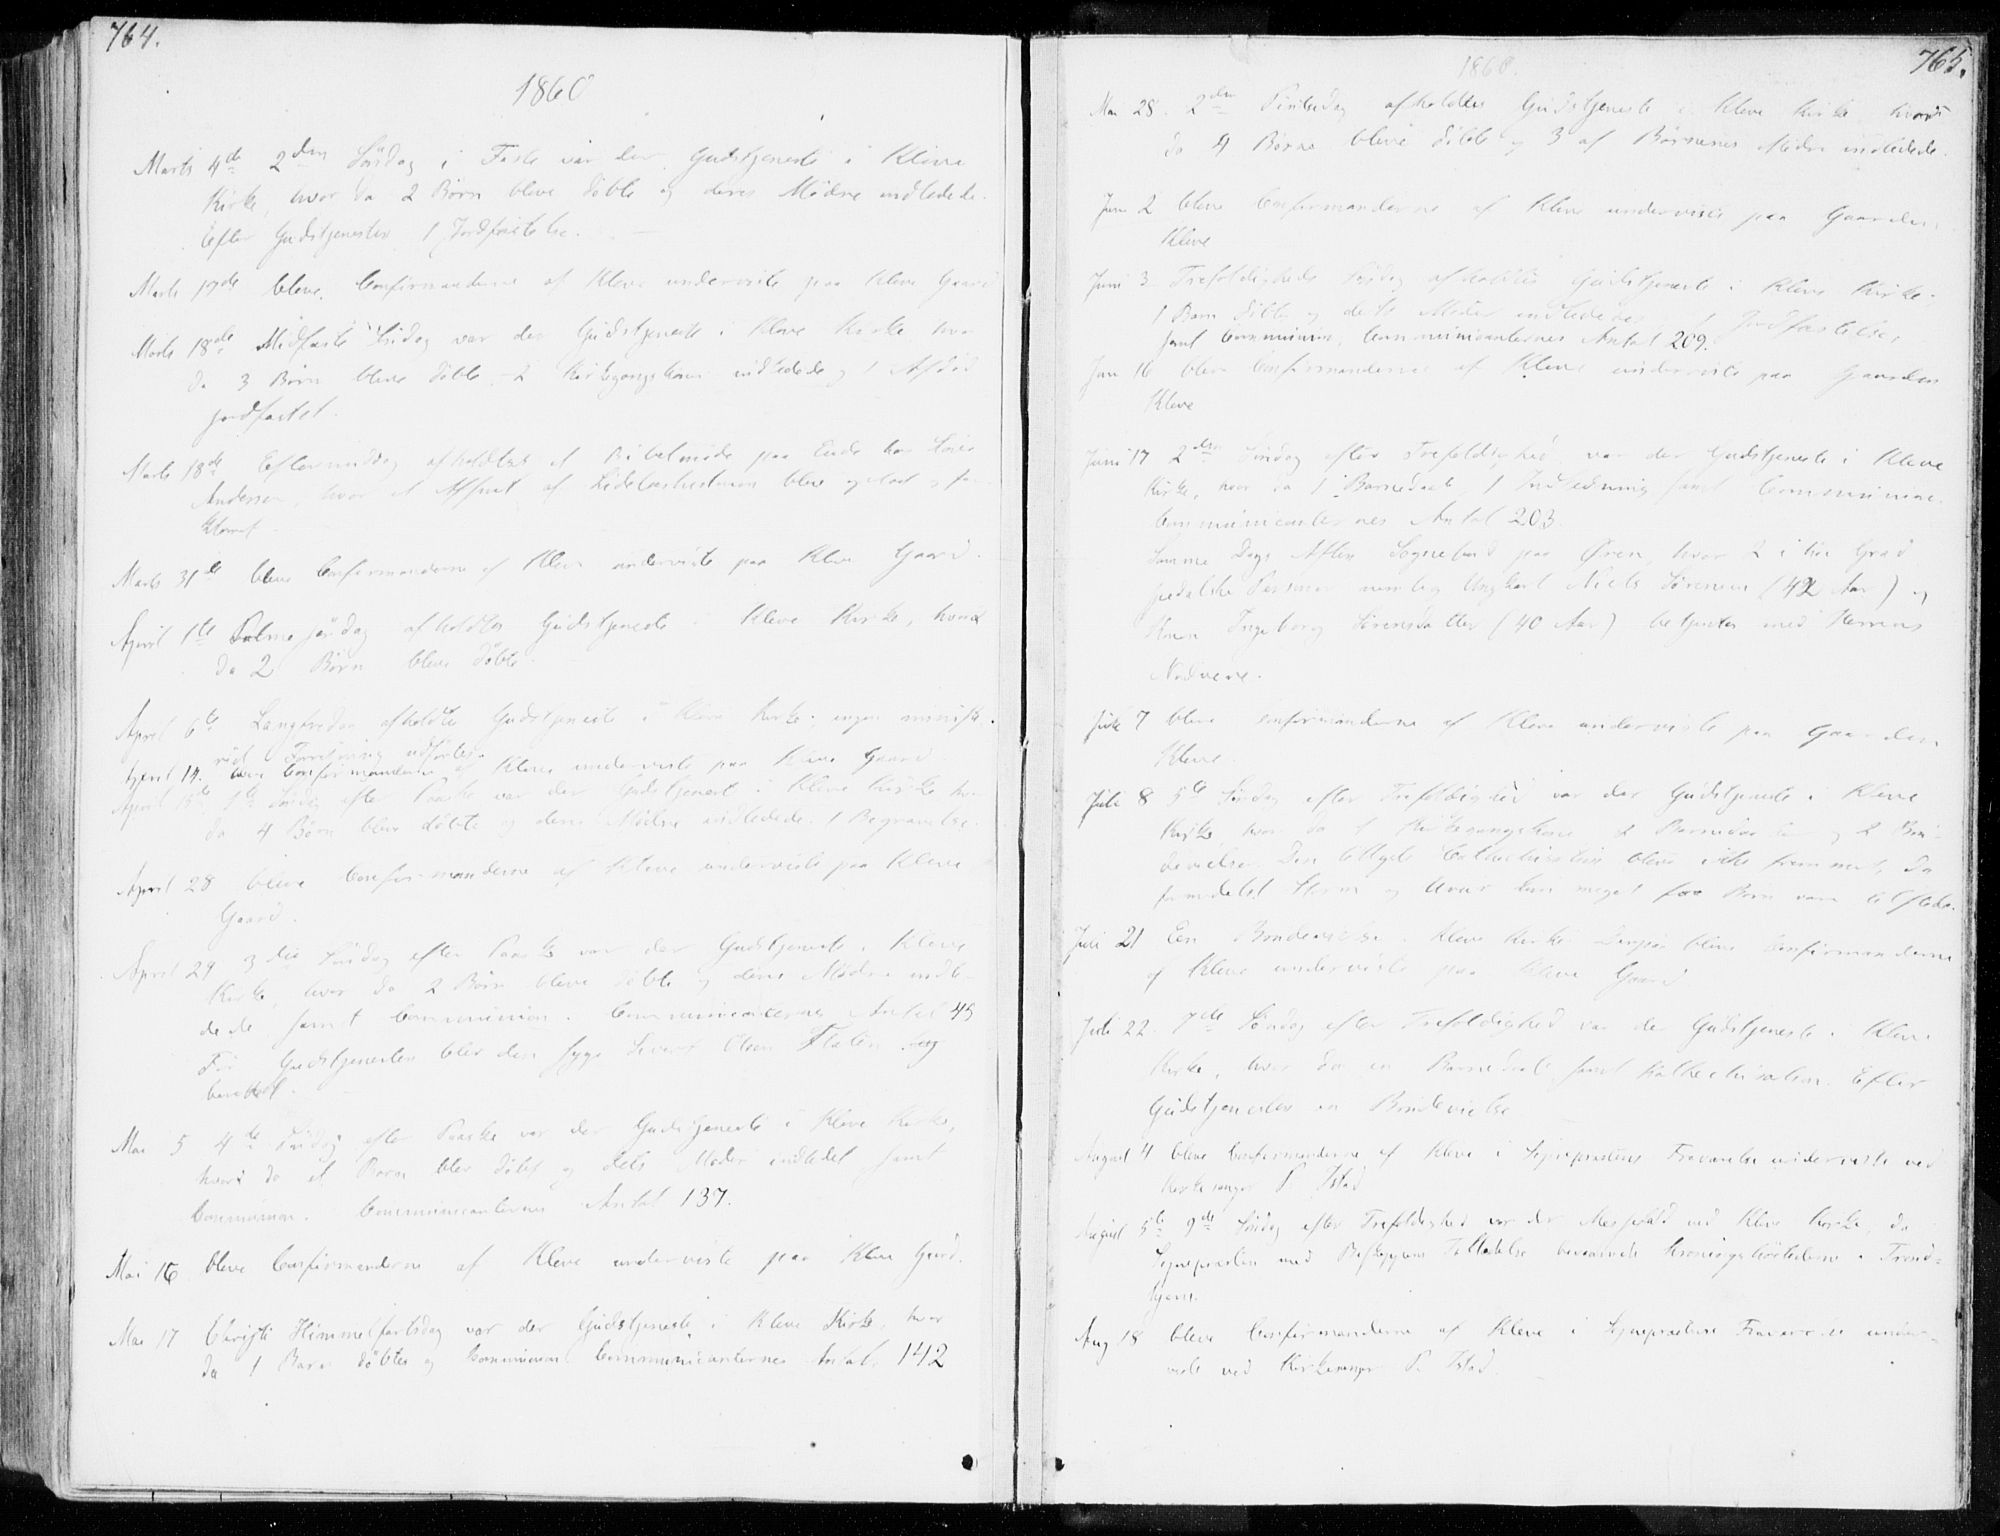 764.
1860
Marts 4de 2den Søndag i Faste var der Gudstjeneste i Kleve
Kirke, hvor da 2 Børn bleve døbte og deres Mødre indledede.
Efter Gudstjenesten 1 Jordfæstelse.
Marts 17de bleve Confirmanderne af Kleve underviste paa Kleve Gaard
Marts 18de Midfaste Søndag var der Gudstjeneste i Kleve Kirke hvor
da 3 Børn bleve døbte, 2 Kirkegangskoner indledede og 1 Afdød
jordfæstet.
Marts 18de Eftermiddag afholdtes et Bibelmøde paa Eide hos
Andersen, hvor et Afsnit af bleve oplæst og for-
klaret.
Marts 31te bleve Confirmanderne af Kleve underviste paa Kleve Gaard.
April 1te Palmesøndag afholdtes Gudstjeneste i Kleve Kirke, hvor
da 2 Børn bleve døbte.
April 6te Langfredag afholdtes Gudstjeneste i Kleve Kirke; ingen minist.
Forretning udførtes.
April 14. bleve Confirmanderne af Kleve underviste paa Kleve Gaard
April 15de 1te Søndag efter Paaske var der Gudstjeneste i Kleve Kirke hvor
da 4 Børn bleve døbte og deres Mødre indledede. 1 Begravelse.
April 28 bleve Confirmanderne af Kleve underviste paa Kleve
Gaard.
April 29 3die Søndag efter Paaske var der Gudstjeneste i Kleve
Kirke, hvor da 2 Børn bleve døbte og deres Mødre indle-
dede samt Communion. Communicanternes Antal 45
Før Gudstjenesten blev den syge Sivert Olsen Flaten
berettet.
Mai 5 4de Søndag efter Paaske var der Gudstjeneste i Kleve Kirke,
hvor da et Barn blev døbt og dets Moder indledet samt
Communion. Communicanternes Antal 137.
Mai 16 bleve Confirmanderne af Kleve underviste paa Kleve Gaard.
Mai 17 Christi Himmelfartsdag var der Gudstjeneste i Kleve Kirke, hvor
da 1 Barn døbtes og Communion Communicanternes Antal 142
765.
1860.
Mai 28. 2den Pintsedag afholdtes Gudstjeneste i Kleve Kirke, hvor
da 4 Børn bleve døbte og 3 af Børnenes Mødre indledede.
Juni 2 bleve Confirmanderne af Kleve underviste paa Gaarden
Kleve
Juni 3 Trefoldigheds Søndag afholdtes Gudstjeneste i Kleve Kirke;
1 Barn døbtes og dets Moder indledet Jordfæstelse,
samt Communion, Communicanternes Antal 209.
Juni 16 blev Confirmanderne af Kleve underviste paa Gaarden
Kleve
Juni 17 2den Søndag efter Trefoldighed var der Gudstjeneste i Kleve
Kirke, hvor da 1 Barnedaab, 1 Indledning samt Communion.
Communicanternes Antal 203.
Samme Dags Aften Sognebud paa Øren, hvor 2 i høi Grad
spedalske Personer nemlig Ungkarl Niels Sørensen (42 Aar) og
Ingeborg Sørensdatter (40 Aar) betjentes med Herrens
Nadvere.
Juli 7 bleve Confirmanderne af Kleve underviste paa Gaarden
Kleve.
Juli 8 5te Søndag efter Trefoldighed var der Gudstjeneste i Kleve
Kirke hvor da 1 Kirkegangskone 2 Barnedaab og 2 Bru-
devielser. Den Catechisation blev ikke fremmet, da
formedelst Storm og Uveir kun meget faa Børn vare tilstede.
Juli 21 En Brudevielse i Kleve Kirke bleve Confirmanderne
af Kleve underviste paa Kleve Gaard
Juli 22. 7de Søndag efter Trefoldighed var der Gudstjeneste i Kleve
Kirke, hvor da en Barnedaab samt Kathechisation. Efter
Gudstjenesten en Brudevielse
August 4 bleve Confirmanderne af Kleve i Sognepræstens Fraværelse underviste ved
Kirkesanger P. Istad
August 5te 9de Søndag efter Trefoldighed var der Messefald ved Kleve Kirke, da
Sognepræsten med Biskoppens Tilladelse bivaanede Kroningshøitiden i Trond-
hjem.
Aug 18 bleve Confirmanderne af Kleve i Sognepræstens Fraværelse under-
viste ved Kirkesanger P. Istad.